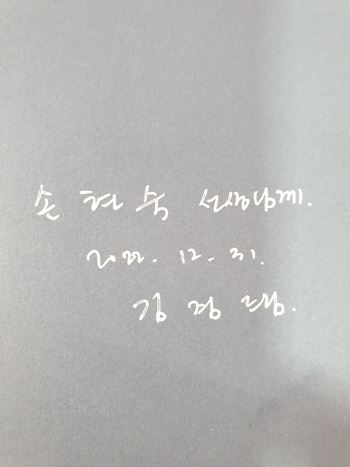 손 현 숙 선생님께.
2022. 12. 31.
김 경 드림.